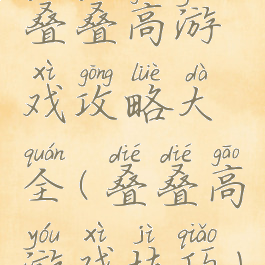 叠叠高游
xì gōng lüè dà
戏攻略大
quán dié dié gāo
全(叠叠高
yóu xì jì qiǎo
游戏技巧)